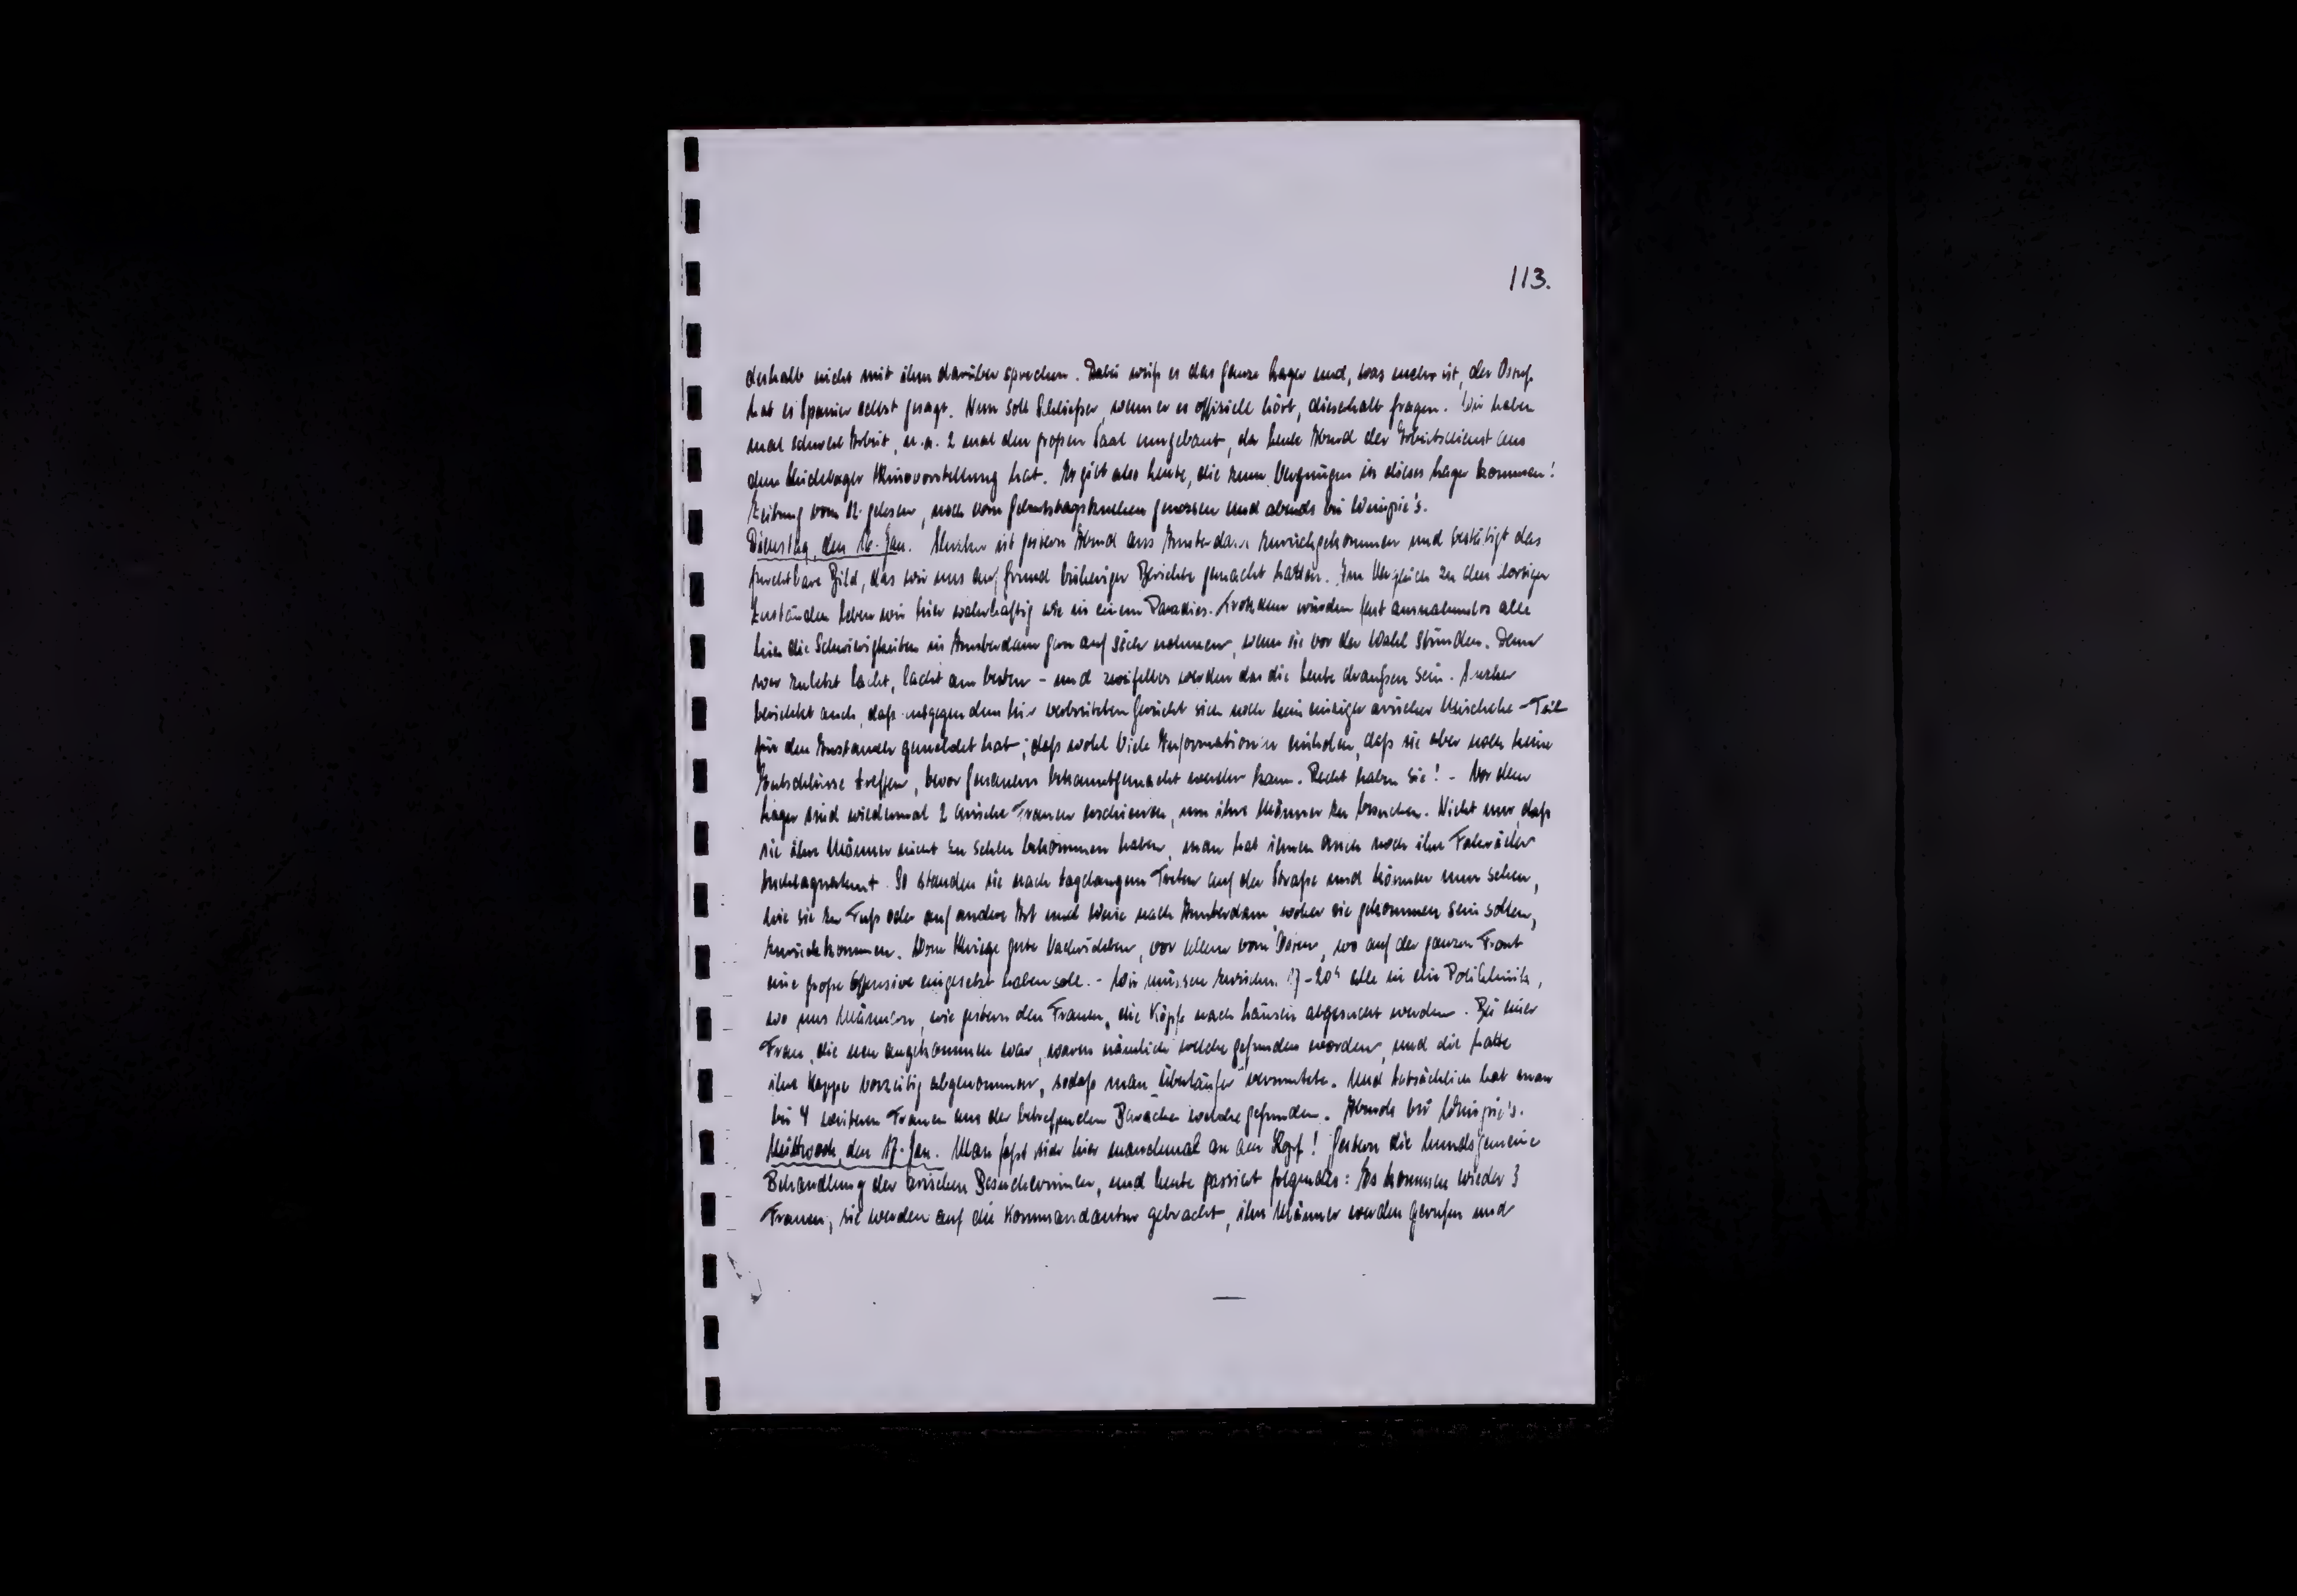 113.
deshalb nicht mit ihm darüber sprechen. Dabei weiß es das ganze Lager und, was mehr ist, der Ostuf.
hat es Spanier selbst gesagt. Nun soll Schließer, wenn er es offiziell hört, dieserhalb fragen. Wir haben
mal schwere Arbeit, u.a. 2 mal den großen Saal umgebaut, da heute Abend der Arbeitsdienst aus
dem Heidelager Kinovorstellung hat. Es gibt also Leute, die zum Vergnügen in dieses Lager kommen!
Zeitung vom 12. gelesen, noch vom Geburtstagskuchen genossen und abends bei Weinpie's.
Dienstag, den 16. Jan. ist gestern Abend aus Amsterdam zurückgekommen und bestätigt das
furchtbare Bild, das wir uns auf Grund bisheriger Berichte gemacht hatten. Im Vergleich zu den dortigen
Zuständen leben wir hier wahrhaftig wie in einem Paradies. Trotzdem würden fast ausnahmslos alle
hier die Schwierigkeiten in Amsterdam gern auf sich nehmen, wenn sie vor der Wahl stünden. Denn
wer zuletzt lacht, lacht am besten - und zweifellos werden das die Leute draußen sein.
berichtet auch, daß entgegen dem hier verbreiteten Gerücht sich noch kein einziger arischer Mischehe-Teil
für den Austausch gemeldet hat; daß wohl Viele Informationen einholen, daß sie aber noch keine
Entschlüsse treffen, bevor Genaueres bekanntgemacht werden kann. Recht haben sie! - Vor dem
Lager sind wiedermal 2 arische Frauen erschienen, um ihre Männer zu besuchen. Nicht nur, daß
sie ihre Männer nicht zu sehen bekommen haben, man hat ihnen auch noch ihre Fahrräder
beschlagnahmt. So standen sie nach tagelangem Treten auf der Straße und können nun sehen,
wie sie zu Fuß oder auf andere Art und Weise nach Amsterdam, woher sie gekommen sein sollen,
zurückkommen. Vom Kriege gute Nachrichten, vor allem vom Osten, wo auf der ganzen Front
eine große Offensive eingesetzt haben soll. - Wir müssen zwischen 17-20h alle in die Poliklinik,
wo uns Männern, wie gestern den Frauen, die Köpfe nach Läusen abgesucht werden. Bei einer
Frau, die neu angekommen war, waren nämlich welche gefunden worden, und die hatte
ihre Kappe vorzeitig abgenommen, sodaß man "Überläufer" vermutete. Und tatsächlich hat man
bei 4 weiteren Frauen aus der betreffenden Baracke welche gefunden. Abends bei Weinpie's.
Mittwoch, den 17. Jan. Man faßt sich hier manchmal an den Kopf! Gestern die hundsgemeine
Behandlung der arischen Besucherinnen, und heute passiert folgendes: Es kommen wieder 3
Frauen, sie werden auf die Kommandantur gebracht, ihre Männer werden gerufen und